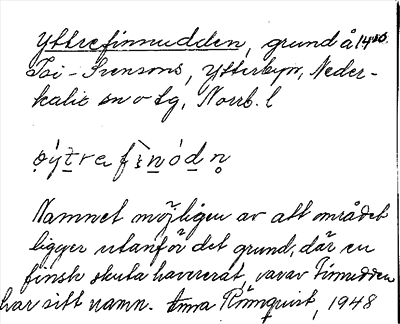 Yttrefinnudden, grund å 1440.
Toi-Svensons, Ytterbyn, Neder-
kalix sn o tg, Norrb. l
o̤ý̤tre fìnó̤dn̥
Namnet möjligen av att området
ligger utanför det grund, där en
finsk skuta havererat, varav Finnudden
har sitt namn. Anna Rönnquist, 1948